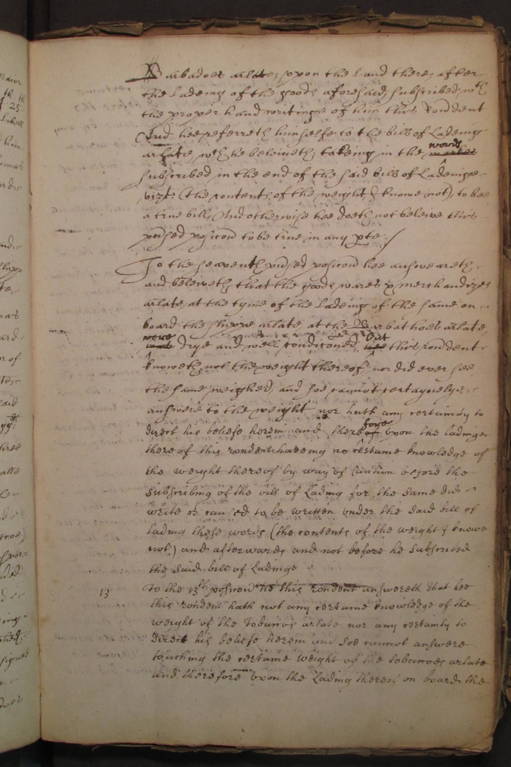 Barbados arlate upon the Land there, after
the Ladeing of the goods aforesaid, subscribed with
the proper hand writinge of him this Rendent
And hee referreth himselfe to the bills of Ladeing
arlate, wch he beleiveth, takeing in the words
subscribed in the end of the said bills of Ladeinge
vizt (the content of the weight I knowe not) to be
a true bill, And otherwise hee doeth not beleive this
prdsed posicon to be true in any pte./
To the seaventh prdsed posicon hee answereth
and beleiveth that the goods wares & merchandizes
arlate at the tyme of the Ladeing of the same on
board the shippe arlate at the Barbathoes arlate
were drye and well condiconed, But this rendent
knoweth not the weight thereof nor did ever see
the same weighed, and soe cannot certaynely
answere to the weight nor hath any certainty to
direct his beleife herein and therefore upon the ladinge
there of this rendent haveing no certaine knowledge of
the weight thereof by way of before the
subscribing of the bill of lading for the same did
write or caused to be written under the said bill of
lading these words (the contents of the weight I knowe
not) and afterwards and not before he subscribed
the said bill of Ladinge
13 to the 13th posicon this rendent answereth that hee
this rendent hath not any certaine knowledge of the
weight of the Tobaccoes arlate nor any certainty to
direct his beleife herein and soe cannot answere
touching the certaine weight of the tobaccoes arlate
and therefore upon the Lading thereof on board the